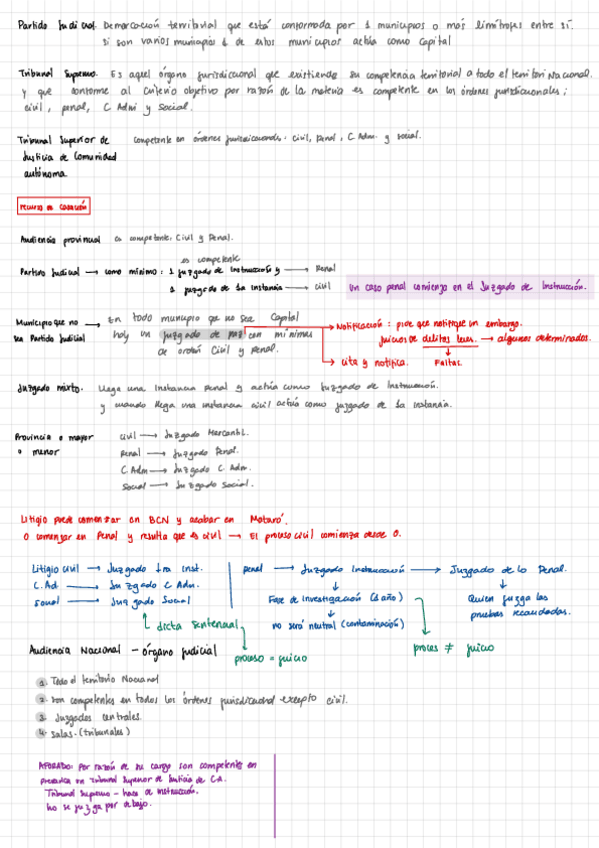 Partido Judicial. Demarcación territorial que está conformada por 1 municipios o más limítrofes entre sí.
si son varios municipios 1 de estos municipios actúa como Capital
Tribunal Supremo. Es aquel órgano jurisdiccional que extiende su competencia territorial a todo el territori Nacional.
y que conforme al criterio objetivo por razón de la materia es competente en los órdenes jurisdiccionales;
civil, penal, C Admi y Social.
Tribunal Superior de competente en órdenes jurisdiccionales: civil, penal, C. Adm. y social.
Justicia de Comunidad
autónoma
recurso de casación
Audiencia provincial es competente: Civil y Penal.
es competente
Partido Judicial → como mínimo: 1 juzgado de instrucción y → Penal
1 juzgado de 1a instancia → civil
un caso penal comienza en el Juzgado de Instrucción.
Municipio que no → En todo municipio que no sea Capital
sea Partido Judicial hay un juzgado de paz con mínimas
de orden Civil y Penal.
→ Notificación: pide que notifique un embargo.
juicios de delitos leves. → algunos determinados.
↓
→ cita y notifica. Faltas.
Juzgado mixto. Llega una instancia penal y actúa como Juzgado de Instrucción.
y cuando llega una instancia civil actúa como juzgado de 1a instancia.
Provincia o mayor civil → Juzgado Mercantil.
o menor Penal → Juzgado Penal.
C. Adm → Juzgado C Adm.
Social → Juzgado Social.
Litigio puede comenzar en BCN y acabar en Mataró.
O comenzar en Penal y resulta que es civil → El proceso civil comienza desde 0.
Litigio civil → Juzgado 1ra inst.
C. Ad. → Juzgado C Adm.
social → Juzgado Social
↳ dicta sentencia
proceso = juicio
penal → Juzgado Instrucción → Juzgado de lo Penal.
Fase de investigación
↓
no será neutral (contaminación)
proces ≠ juicio
Quien juzga las
pruebas recaudadas.
Audiencia Nacional - órgano judicial
1. Todo el territorio Nacional
2. son competentes en todos los órdenes jurisdiccional excepto civil.
3. Juzgados centrales.
4. Salas. (tribunales)
AFORADO: Por razón de su cargo son competente en
Tribunal Superior de Justicia de C.A.
Tribunal Supremo - hace de instrucción.
No se juzga por debajo.